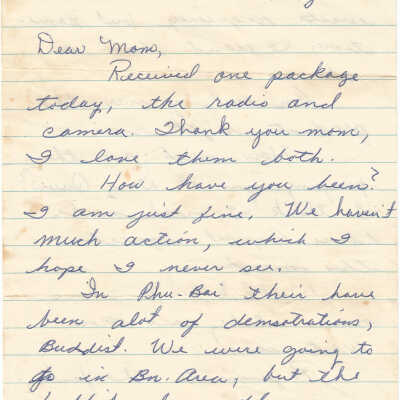 Dear Mom,
Received one package
today, the radio and
camera. Thank you mom,
I love them both.
How have you been?
I am just fine. We haven't
much action, which I
hope I never see.
In Phu-Bai their have
been alot of demsotrations,
Buddist. We were going to
go in Bn. Area, but the